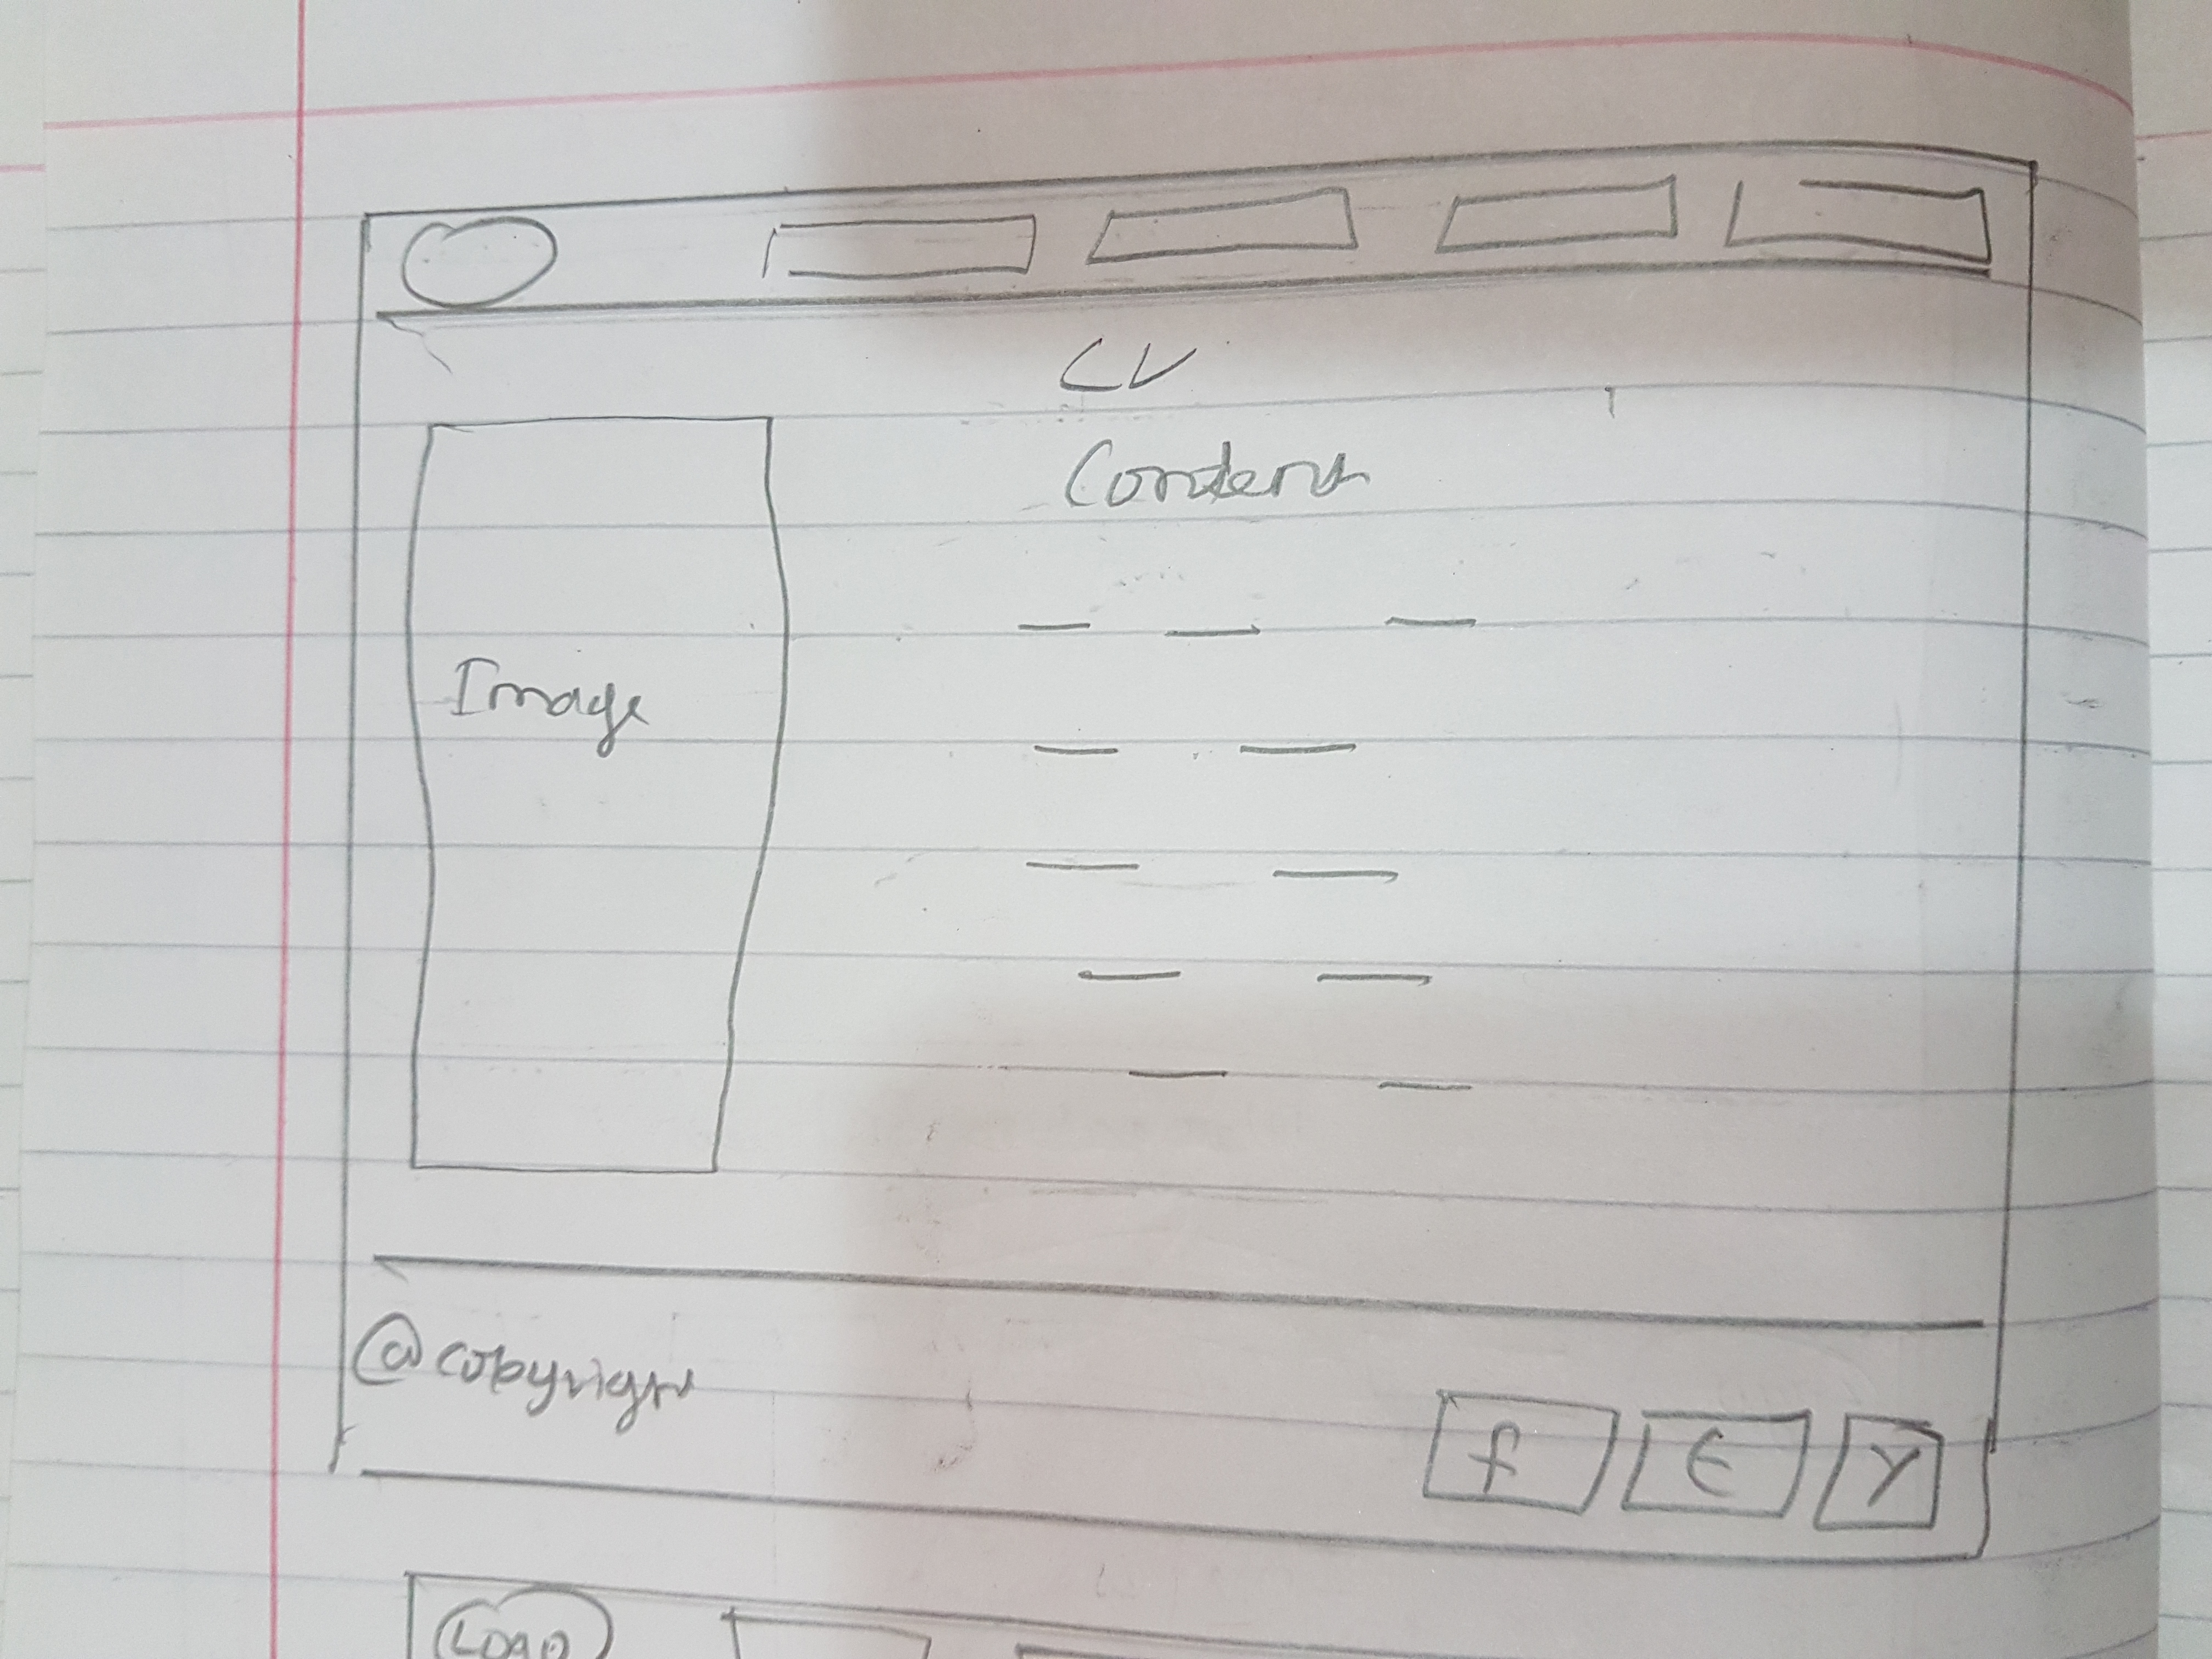 CV
Content
Image
@ copyright
f
t
Y
LOGO